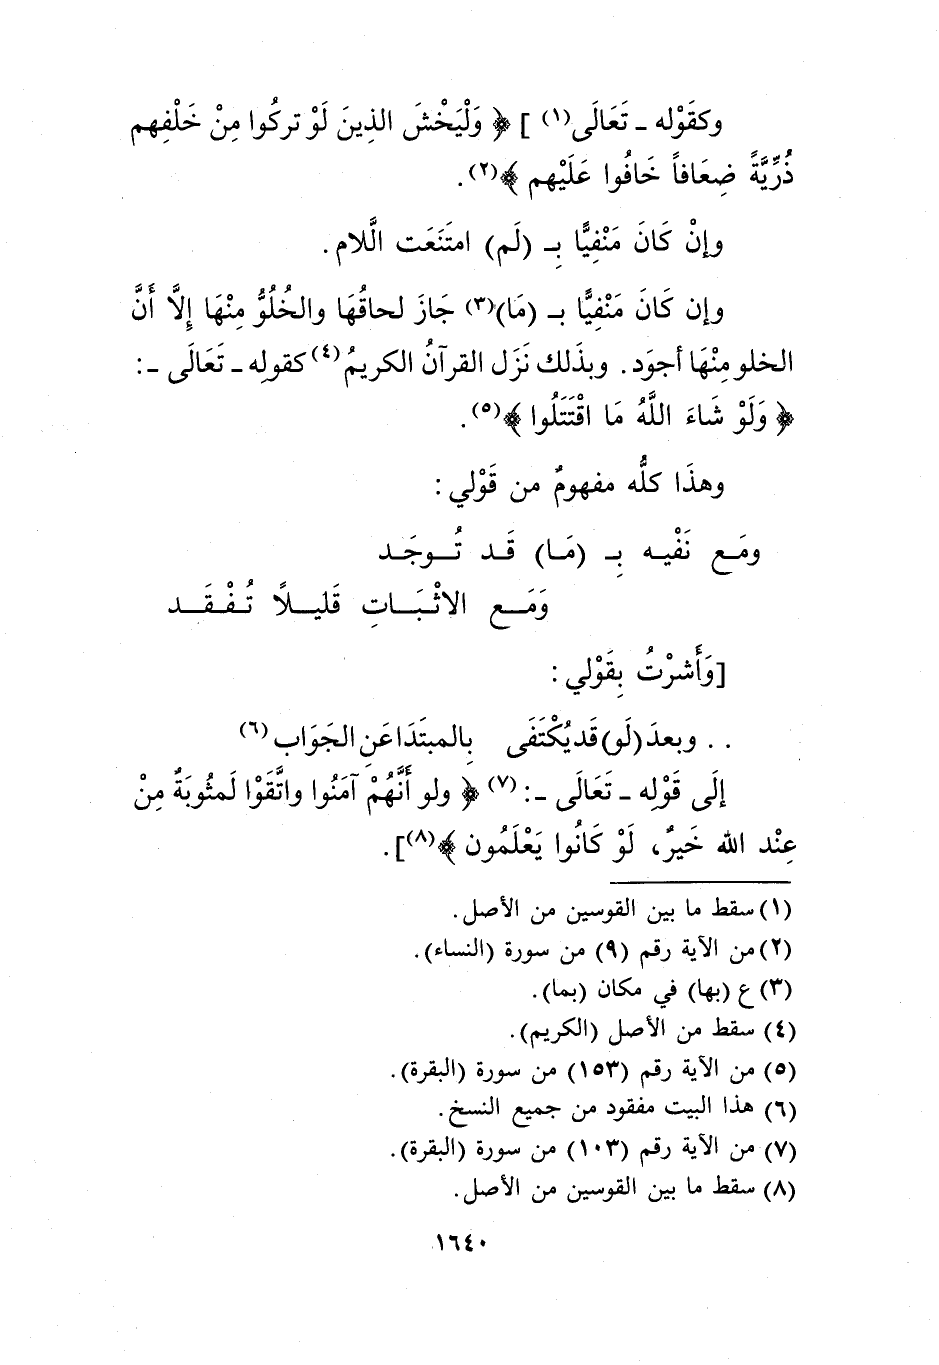 وكقَوْله ـ تَعَالَى(١) ] ﴿ وَلْيَخْشَ الذِينَ لَوْ تركُوا مِنْ خَلْفِهم
ذُرِّيَّةً ضِعَافاً خَافُوا عَلَيْهم ﴾(٢).
وإنْ كَانَ مَنْفِيًّا بِـ (لَم) امتَنَعَت الَّلام.
وإن كَانَ مَنْفِيًّا بـ (مَا)(٣) جَازَ لحاقُهَا والخُلُوُّ مِنْهَا إلَّا أنَّ
الخلو مِنْهَا أجوَد. وبذَلك نَزَل القرآنُ الكريمُ(٤) كقولِه ـ تَعَالَى ـ:
﴿ وَلَوْ شَاءَ اللَّهُ مَا اقْتَتَلُوا ﴾(٥).
وهذَا كلُّه مفهومٌ من قَوْلي:
ومَـع نَفْيـه بِـ (مَـا) قَـد تُـوجَـد
وَمَـع الاثْبَـاتِ قَليـلاً تُـفْـقَـد
[وَأَشرْتُ بِقَوْلي:
. . وبعدَ (لَو) قَد يُكْتَفَى بِالمبتَدَا عَنِ الجَوَاب(٦)
إلَى قَوْلِه ـ تَعَالَى ـ:(٧) ﴿ ولو أَنَّهُمْ آمَنُوا واتَّقَوْا لَمثُوبَةٌ مِنْ
عِنْد الله خَيرٌ، لَوْ كَانُوا يَعْلَمُون ﴾(٨)].
(١) سقط ما بين القوسين من الأصل.
(٢) من الآية رقم (٩) من سورة (النساء).
(٣) ع (بها) في مكان (بما).
(٤) سقط من الأصل (الكريم).
(٥) من الآية رقم (١٥٣) من سورة (البقرة).
(٦) هذا البيت مفقود من جميع النسخ.
(٧) من الآية رقم (١٠٣) من سورة (البقرة).
(٨) سقط ما بين القوسين من الأصل.
١٦٤٠